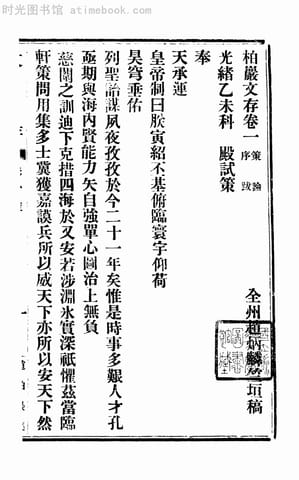 时光图书馆 - atimebook.com
柏巖文存卷一 策 論 序 跋
全州趙炳麟竺垣稿
光緒乙未科 殿試策
奉
天承運
皇帝制曰朕寅紹丕基俯臨寰宇仰荷
昊穹垂佑
列聖詒謀夙夜孜孜於今二十一年矣惟是時事多艱人才孔
亟期與海內賢能力矢自強單心圖治上無負
慈闈之訓迪下克措四海於乂安若涉淵冰實深祇懼茲當臨
軒策問用集多士冀獲嘉謨兵所以威天下亦所以安天下然